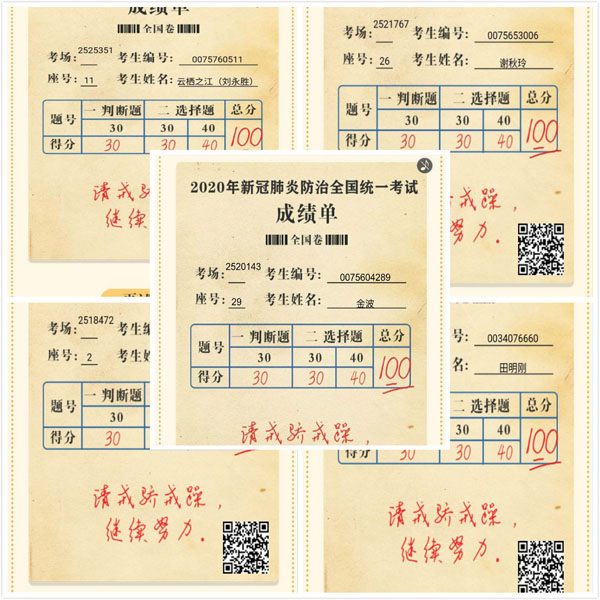 成绩单
全国卷
考场: 2525351 考生编号: 0075760511
座号: 11 考生姓名: 云栖之江（刘永胜）
题号 一 判断题 二 选择题 总分
30 30 40
得分 30 30 40 100
请戒骄戒躁，
继续努力
考场: 2521767 考生编号: 0075653006
座号: 26 考生姓名: 谢秋玲
题号 一 判断题 二 选择题 总分
30 30 40
得分 30 30 40 100
戒躁，
努力.
2020年新冠肺炎防治全国统一考试
成绩单
全国卷
考场: 2520143 考生编号: 0075604289
座号: 29 考生姓名: 金波
题号 一 判断题 二 选择题 总分
30 30 40
得分 30 30 40 100
请戒骄戒躁，
考场: 2518472 考生编
座号: 2 考生姓
题号 一 判断题
30
得分 30
请戒骄戒躁，
继续努力.
号: 0034076660
名: 田明刚
二 选择题 总分
30 40
得分 30 30 40 100
请戒骄戒躁，
继续努力.